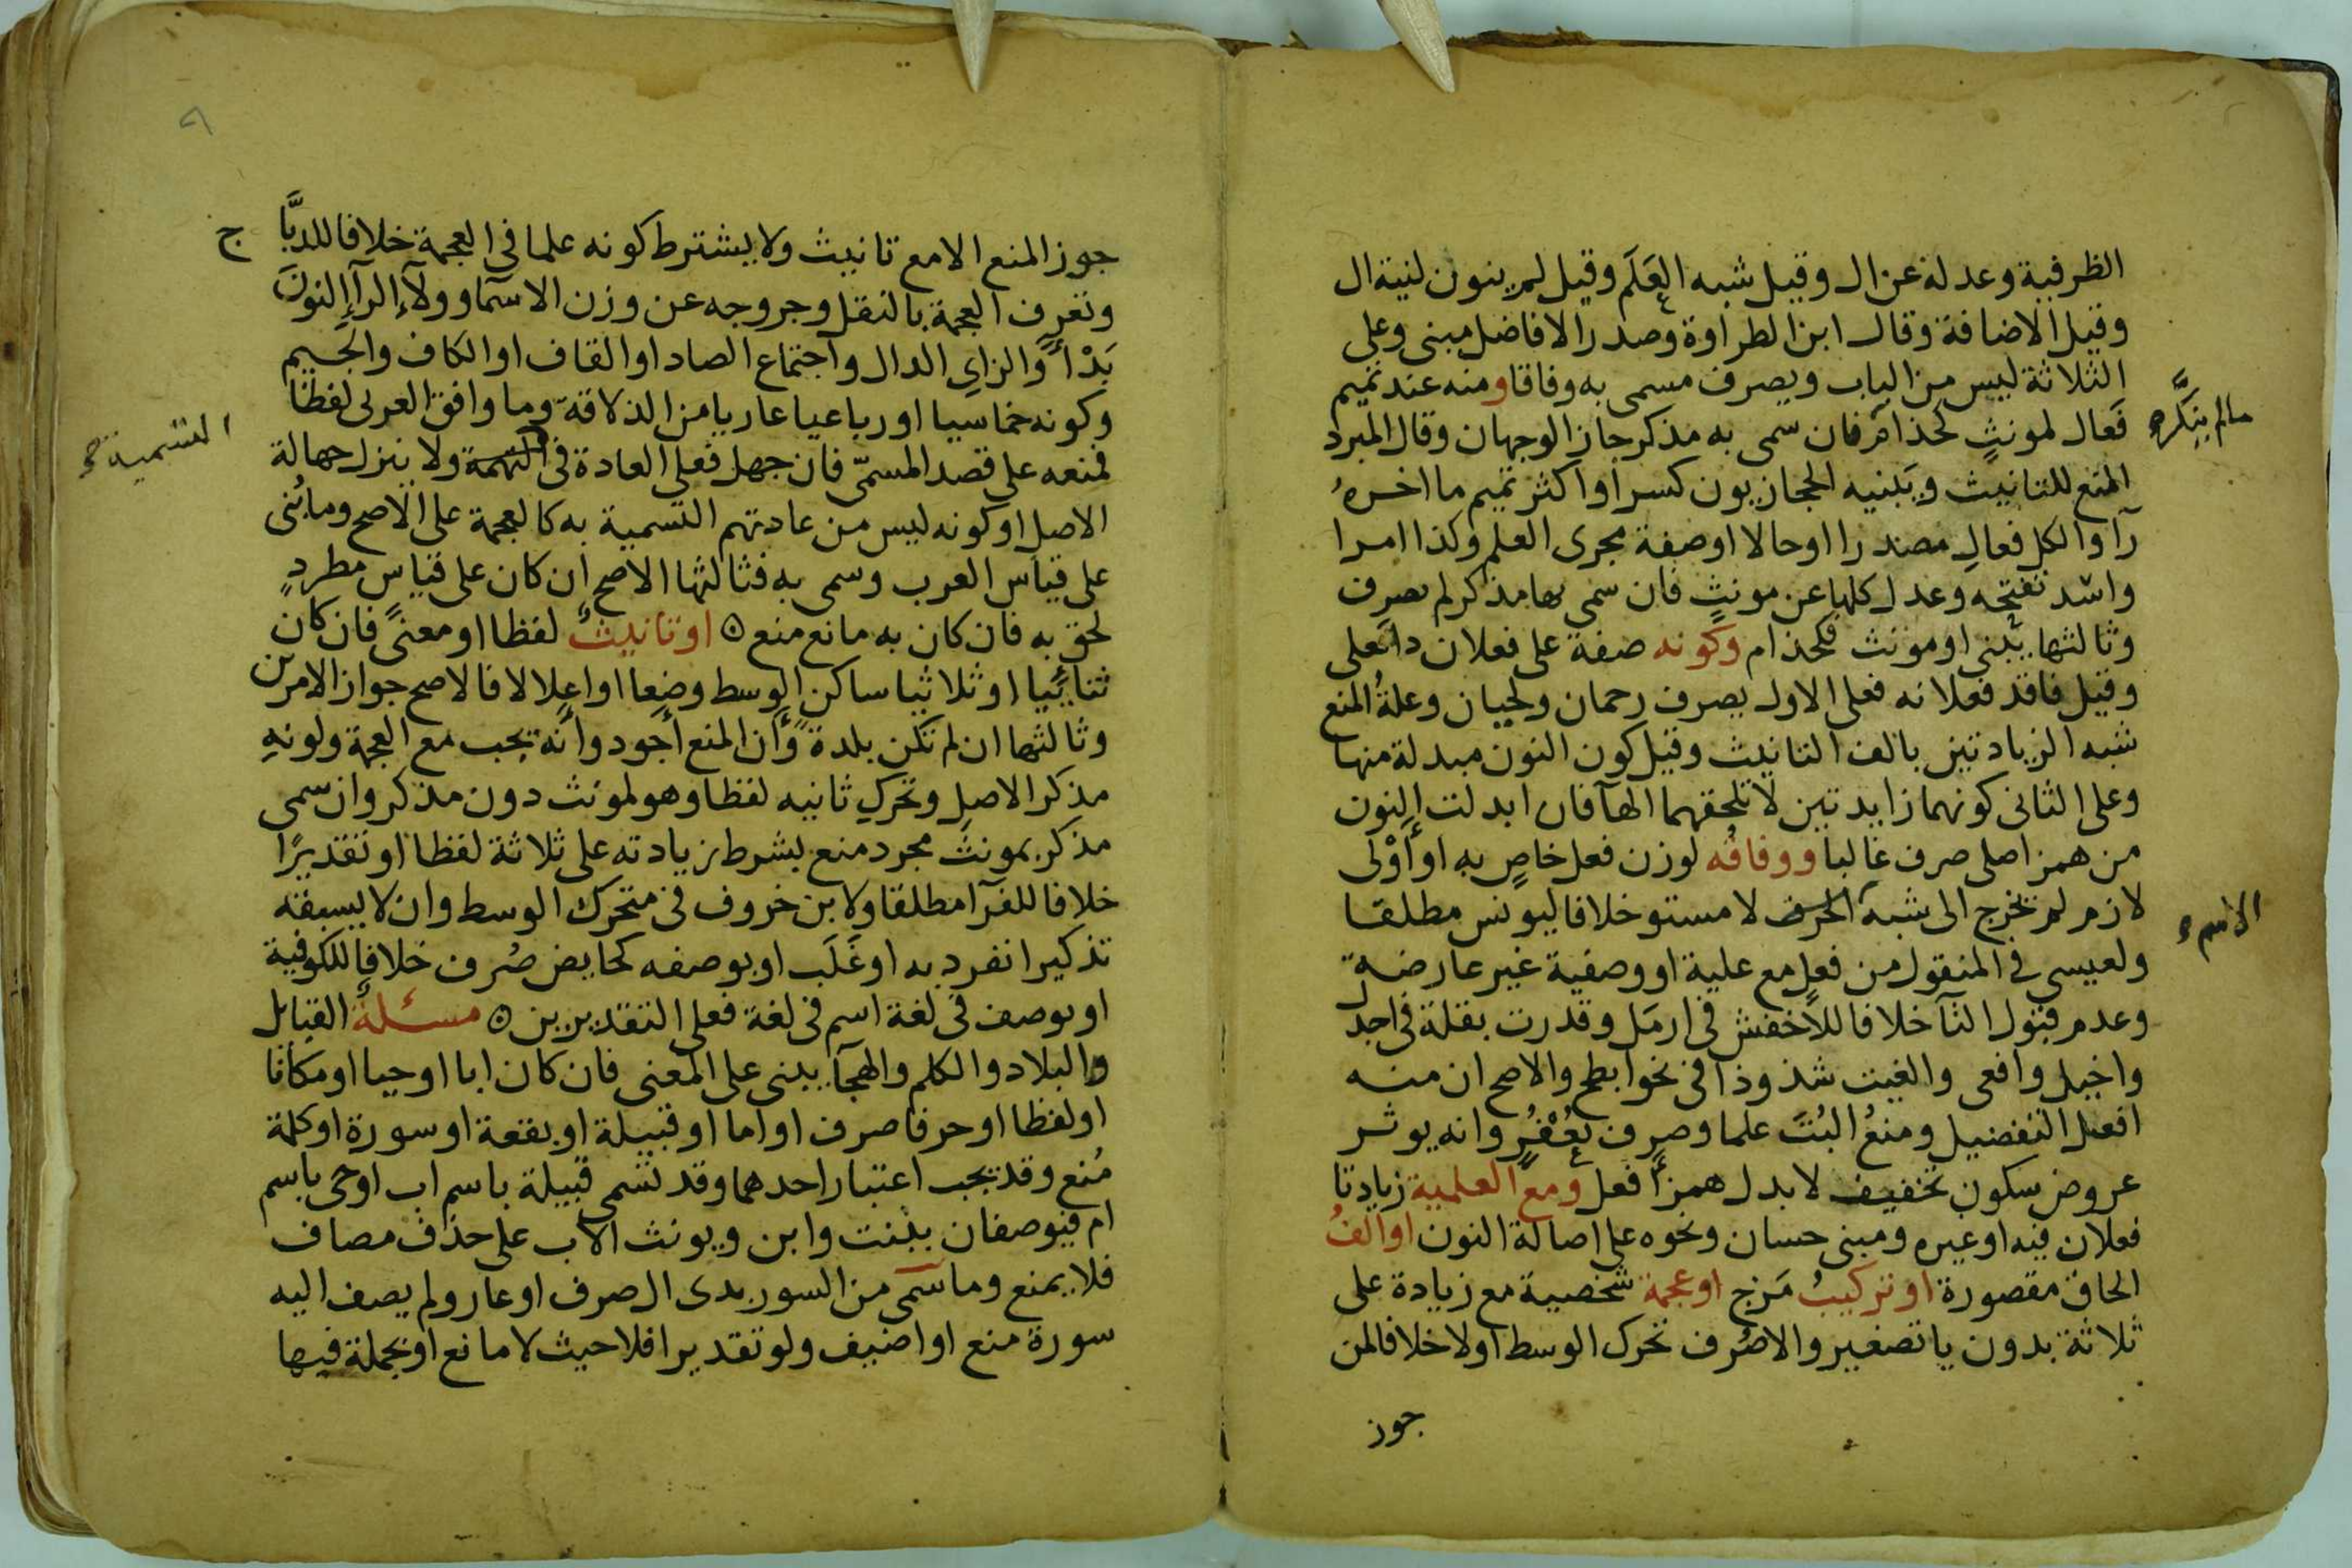 الظرفية وعدله عن ال وقيل شبه العَلَم وقيل لم ينون لنية ال
وقيل الاضافة وقال ابن الطراوة وصدر الافاضل مبنى وعلى
الثلاثة ليس من الباب ويصرف مسمى به وفاقا ومنه عند تميم
فَعال لمونثٍ كحذام فان سمى به مذكر جاز الوجهان وقال المبرد
مالم ينكَّر
المنع للتانيث ويبنيه الحجازيون كسرا واكثر تميم ما اخره
رآ والكل فعالِ مصدرا اوحالا اوصفة مجرى العلم وكذا امرا
واسد تفتحه وعدل كلها عن مونثٍ فان سمى بها مذكر لم يصرف
وثالثها يبنى او مونث فكحذام وكونه صفة على فعلان دا فعلى
وقيل فاقد فعلانه فعلى الاول يصرف رحمان ولحيان وعلةُ المنع
شبه الزيادتين بالف التانيث وقيل كون النون مبدلة منها
وعلى الثانى كونهما زايدتين لا تلحقهما الهآ فان ابدلت النون
من همز اصلى صرف غالبا ووفاقُه لوزن فعل خاصٍ به او أَوْلى
لازم لم يخرج الى شبه الحرف لا مستو خلافا ليونس مطلقا
الاسم
ولعيسى فى المنقول من فعلٍ مع علمية او وصفية غير عارضة
وعدم قبول التآ خلافا للأخفش فى ارمَل وقدرت بقلة فى اجدل
واخيل وافعى والغيت شذوذا فى نحو ابطح والاصح ان منه
افعل التفضيل ومنعُ البُتَ علما وصرف يُعْفُرٍ وانه يوثر
عروض سكون تخفيف لا بدل همز أفعل ومع العلمية زيادتا
فعلان فيه او غيره ومبنى حسان ونحوه على اصالة النون او الفُ
الحاق مقصورة او تركيبُ مَزج او عجمة شخصية مع زيادة على
ثلاثة بدون يا تصغير والا صُرف تحرك الوسط اولا خلافا لمن
جوز
جوز المنع الا مع تانيث ولا يشترط كونه علما فى العجمة خلافا للدبَّا ج
وتعرف العجمة بالنقل وخروجه عن وزن الاسمآ وولآءِ الرآءِ النونَ
بَدْأً والزاىِ الدال واجتماع الصاد او القاف او الكاف والجيم
وكونه خماسيا او رباعيا عاريا من الذلاقة وما وافق العربى لفظا
فمنعه على قصد المسمّى فان جهل فعلى العادة فى التهمة ولا ينزل جهالة
التسمية
الاصل او كونه ليس من عادتهم التسمية به كالعجمة على الاصح وما بُنى
على قياس العرب وسمى به فثالثها الاصح ان كان على قياس مطردٍ
لحق به فان كان به مانع منع ۞ او تانيثٌ لفظا او معنىً فان كان
ثنائيا او ثلاثيا ساكن الوسط وضعا او اعلالا فالاصح جواز الامرين
وثالثها ان لم تكن بلدةً وأن المنع أجود وأنه يجب مع العجمة ولونهِ
مذكر الاصل وتحركِ ثانيه لفظا وهو لمونث دون مذكر وان سمى
مذكر بمونث مجرد منع بشرط زيادته على ثلاثة لفظا او تقديرًا
خلافا للفرآ مطلقا ولابن خروف فى متحرك الوسط وان لا يسبقه
تذكير انفرد به او غَلَب او بوصفه كحايض صُرف خلافا للكوفية
او بوصف فى لغة اسم فى لغة فعلى التقديرين ۞ مسئلةٌ القبايل
والبلاد والكلم والهجآ يبنى على المعنى فان كان ابا او حيا او مكانا
او لفظا او حرفا صرف او اما او قبيلة او بقعة او سورة او كلمة
مُنع وقد يجب اعتبار احدهما وقد تسمى قبيلة باسم اب او حى باسم
ام فيوصفان ببنت وابن ويونث الاب على حذف مضاف
فلا يمنع وما سمى من السور بذى ال صرف او عار ولم يضف اليه
سورة منع او اضيف ولو تقديرا فلا حيث لا مانع او بجملة فيها